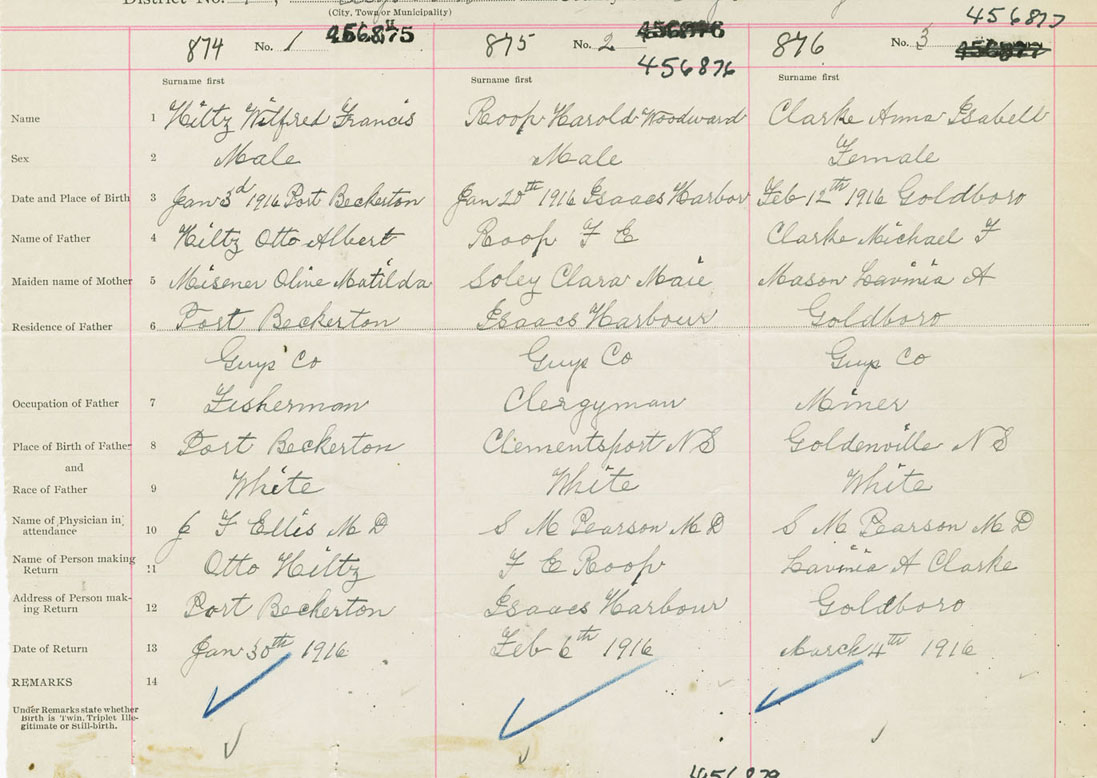 District No.
(City, Town or Municipality)
456875 456876 456877
874 No. 1 875 No. 2 876 No. 3
456876 456877
Surname first Surname first Surname first
Name 1 Hiltz Wilfred Francis Roop Harold Woodward Clarke Anna Isabell
Sex 2 Male Male Female
Date and Place of Birth 3 Jan 3d 1916 Port Beckerton Jan 20th 1916 Isaacs Harbor Feb 12th 1916 Goldboro
Name of Father 4 Hiltz Otto Albert Roop F E Clarke Michael F
Maiden name of Mother 5 Misener Olive Matilda Soley Clara Maie Mason Lavinia A
Residence of Father 6 Port Beckerton Isaacs Harbour Goldboro
Guys Co Guys Co Guys Co
Occupation of Father 7 Fisherman Clergyman Miner
Place of Birth of Father 8 Port Beckerton Clementsport N S Goldenville N S
and
Race of Father 9 White White White
Name of Physician in attendance 10 J F Ellis M D S M Pearson M D S M Pearson M D
Name of Person making Return 11 Otto Hiltz F E Roop Lavinia A Clarke
Address of Person making Return 12 Port Beckerton Isaacs Harbour Goldboro
Date of Return 13 Jan 30th 1916 Feb 6th 1916 March 4th 1916
REMARKS 14
Under Remarks state whether
Birth is Twin, Triplet Ille-
gitimate or Still-birth.